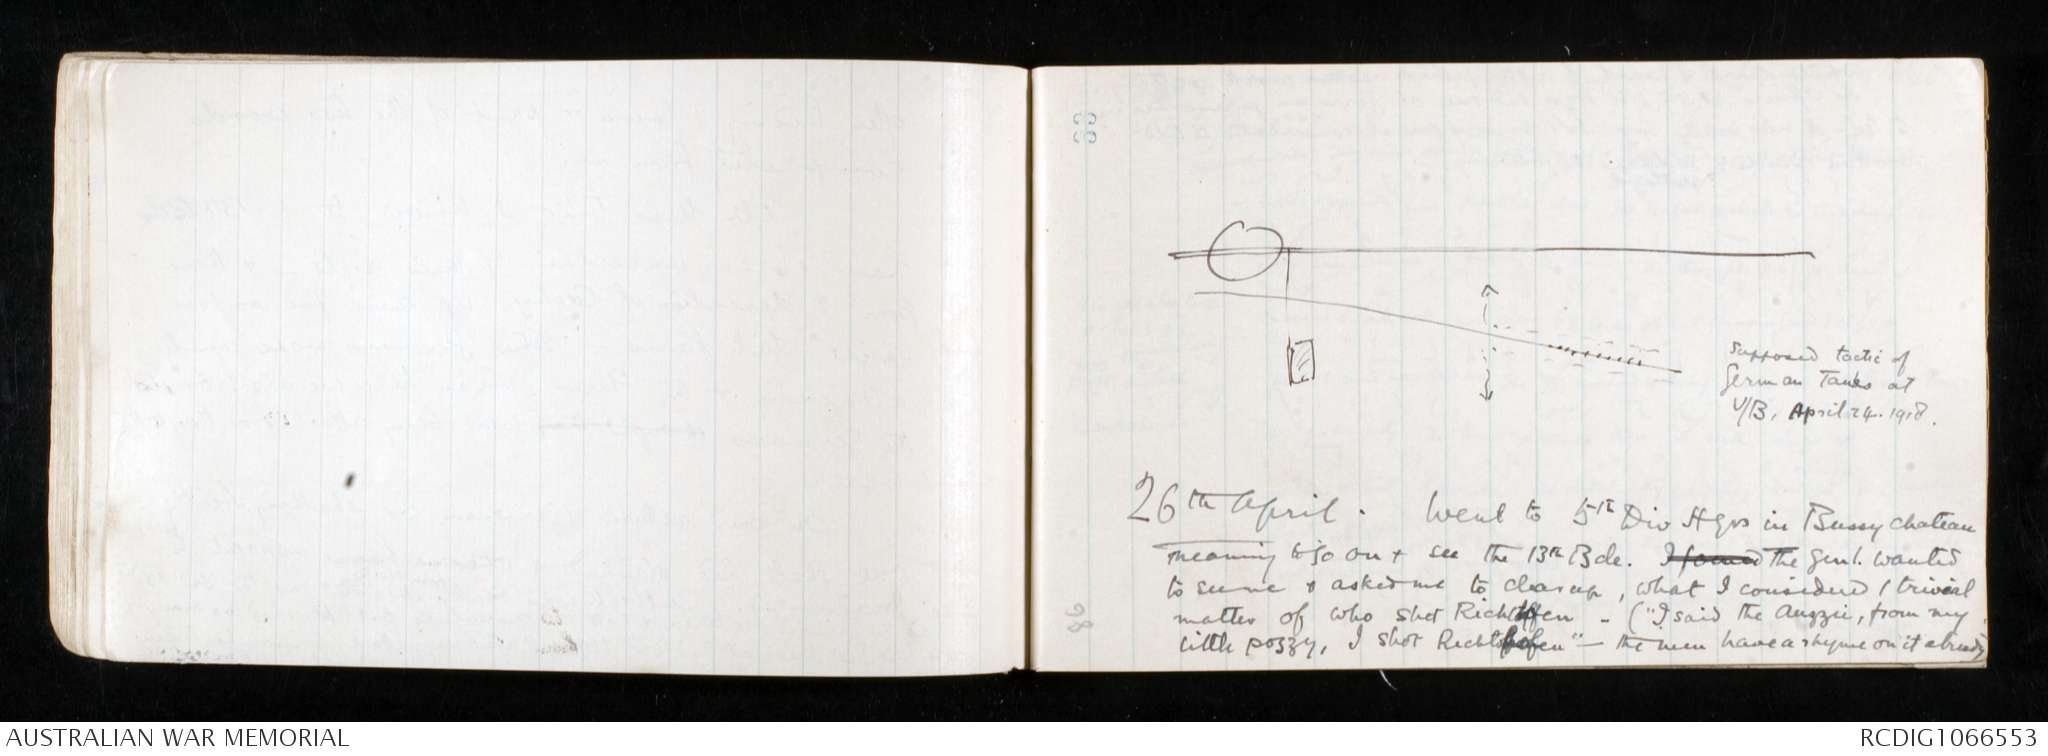 33
Supposed tactic of
German Tanks at
V/B, April 24. 1918.
26th April. Went to 5th Div Hqrs in Bussy chateau
meaning to go on & see the 13th Bde. I found the genl. wanted
to see me & asked me to clear up, what I considered, trivial
matter of who shot Richthofen - ("I said the Auzzie, from my
little pozzy, I shot Richthofen" - the men have a rhyme on it already)
AUSTRALIAN WAR MEMORIAL
RCDIG1066553